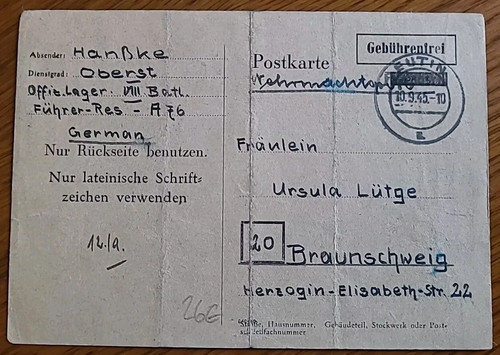 Absender: Hanßke
Dienstgrad: Oberst
Offis.Lager. VIII Batl.
Führer-Res. - A 76
German
Nur Rückseite benutzen.
Nur lateinische Schrift=
zeichen verwenden
12./9.
26E
Postkarte
Gebührenfrei
EUTIN
10.9.45.-10
a
Fräulein
Ursula Lütge
20
Braunschweig
Herzogin-Elisabeth-Str. 22
Straße, Hausnummer, Gebäudeteil, Stockwerk oder Post-
schließfachnummer